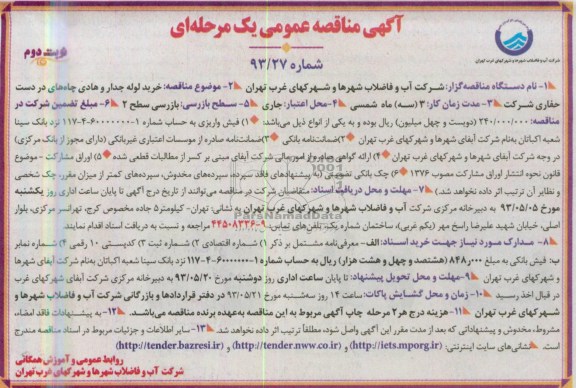 آگهی مناقصه عمومی یک مرحله‌ای
شماره ۹۳/۲۷
نوبت دوم
شرکت آب و فاضلاب شهرها و شهرکهای غرب تهران
۱- نام دستگاه مناقصه‌گزار: شرکت آب و فاضلاب شهرها و شهرکهای غرب تهران ۲- موضوع مناقصه: خرید لوله جدار و هادی چاه‌های در دست
حفاری شرکت ۳- مدت زمان کار: ۳ (سه) ماه شمسی ۴- محل اعتبار: جاری ۵- سطح بازرسی: بازرسی سطح ۲ ۶- مبلغ تضمین شرکت در
مناقصه: ۲۴۰/۰۰۰/۰۰۰ (دویست و چهل میلیون) ریال بوده و به یکی از انواع ذیل می‌باشد: ۱) فیش واریزی به حساب شماره ۱-۶۰۰۰۰۰۰-۴-۱۱۷ نزد بانک سینا
شعبه اکباتان به‌نام شرکت آبفای شهرها و شهرکهای غرب تهران ۲) ضمانت‌نامه بانکی ۳) ضمانت‌نامه صادره از موسسات اعتباری غیربانکی (دارای مجوز از بانک مرکزی)
در وجه شرکت آبفای شهرها و شهرکهای غرب تهران ۴) ارائه گواهی صادره از امور مالی شرکت آبفای مبنی بر کسر از مطالبات قطعی شده ۵) اوراق مشارکت - موضوع
قانون نحوه انتشار اوراق مشارکت مصوب ۱۳۷۶ ۶) چک بانکی تضمینی (به پیشنهادهای فاقد سپرده، سپرده‌های مخدوش، سپرده‌های کمتر از میزان مقرر، چک شخصی
و نظایر آن ترتیب اثر داده نخواهد شد.) ۷- مهلت و محل دریافت اسناد: متقاضیان شرکت در مناقصه می‌توانند از تاریخ درج آگهی تا پایان ساعت اداری روز یکشنبه
مورخ ۹۳/۰۵/۰۵ به دبیرخانه مرکزی شرکت آب و فاضلاب شهرها و شهرکهای غرب تهران به نشانی: تهران- کیلومتر ۵ جاده مخصوص کرج، تهرانسر، بلوار
اصلی، خیابان شهید علیرضا راسخ مهر (یکم غربی)، ساختمان شماره یک، تلفن‌های تماس: ۹-۴۴۵۰۸۳۳۶ مراجعه و نسبت به دریافت اسناد اقدام نمایند.
۸- مدارک مورد نیاز جهت خرید اسناد: الف- معرفی‌نامه مشتمل بر ذکر ۱) شماره اقتصادی ۲) شماره ثبت ۳) کدپستی ۱۰ رقمی ۴) شماره نمابر
ب: فیش بانکی به مبلغ ۸۴۸/۰۰۰ (هشتصد و چهل و هشت هزار) ریال به حساب شماره ۱-۶۰۰۰۰۰۰-۴-۱۱۷ نزد بانک سینا شعبه اکباتان به‌نام شرکت آبفای شهرها
و شهرکهای غرب تهران ۹- مهلت و محل تحویل پیشنهاد: تا پایان ساعت اداری روز دوشنبه مورخ ۹۳/۰۵/۲۰ به دبیرخانه مرکزی شرکت آبفای شهرها و شهرکهای غرب تهران
در قبال اخذ رسید ۱۰- زمان و محل گشایش پاکات: ساعت ۱۴ روز سه‌شنبه مورخ ۹۳/۰۵/۲۱ در دفتر قراردادها و بازرگانی شرکت آب و فاضلاب شهرها و
شهرکهای غرب تهران ۱۱- هزینه درج هر ۲ مرحله چاپ آگهی مربوط به این مناقصه به‌عهده برنده مناقصه می‌باشد. ۱۲- به پیشنهادات فاقد امضاء،
مشروط، مخدوش و پیشنهاداتی که بعد از مدت مقرر این آگهی واصل شود، مطلقاً ترتیب اثر داده نخواهد شد. ۱۳- سایر اطلاعات و جزئیات مربوط در اسناد مناقصه مندرج
است. نشانی‌های سایت اینترنتی: (http://iets.mporg.ir) و (http://tender.nww.co.ir) و (http://tender.bazresi.ir)
روابط عمومی و آموزش همگانی
شرکت آب و فاضلاب شهرها و شهرکهای غرب تهران
ParsNamadData